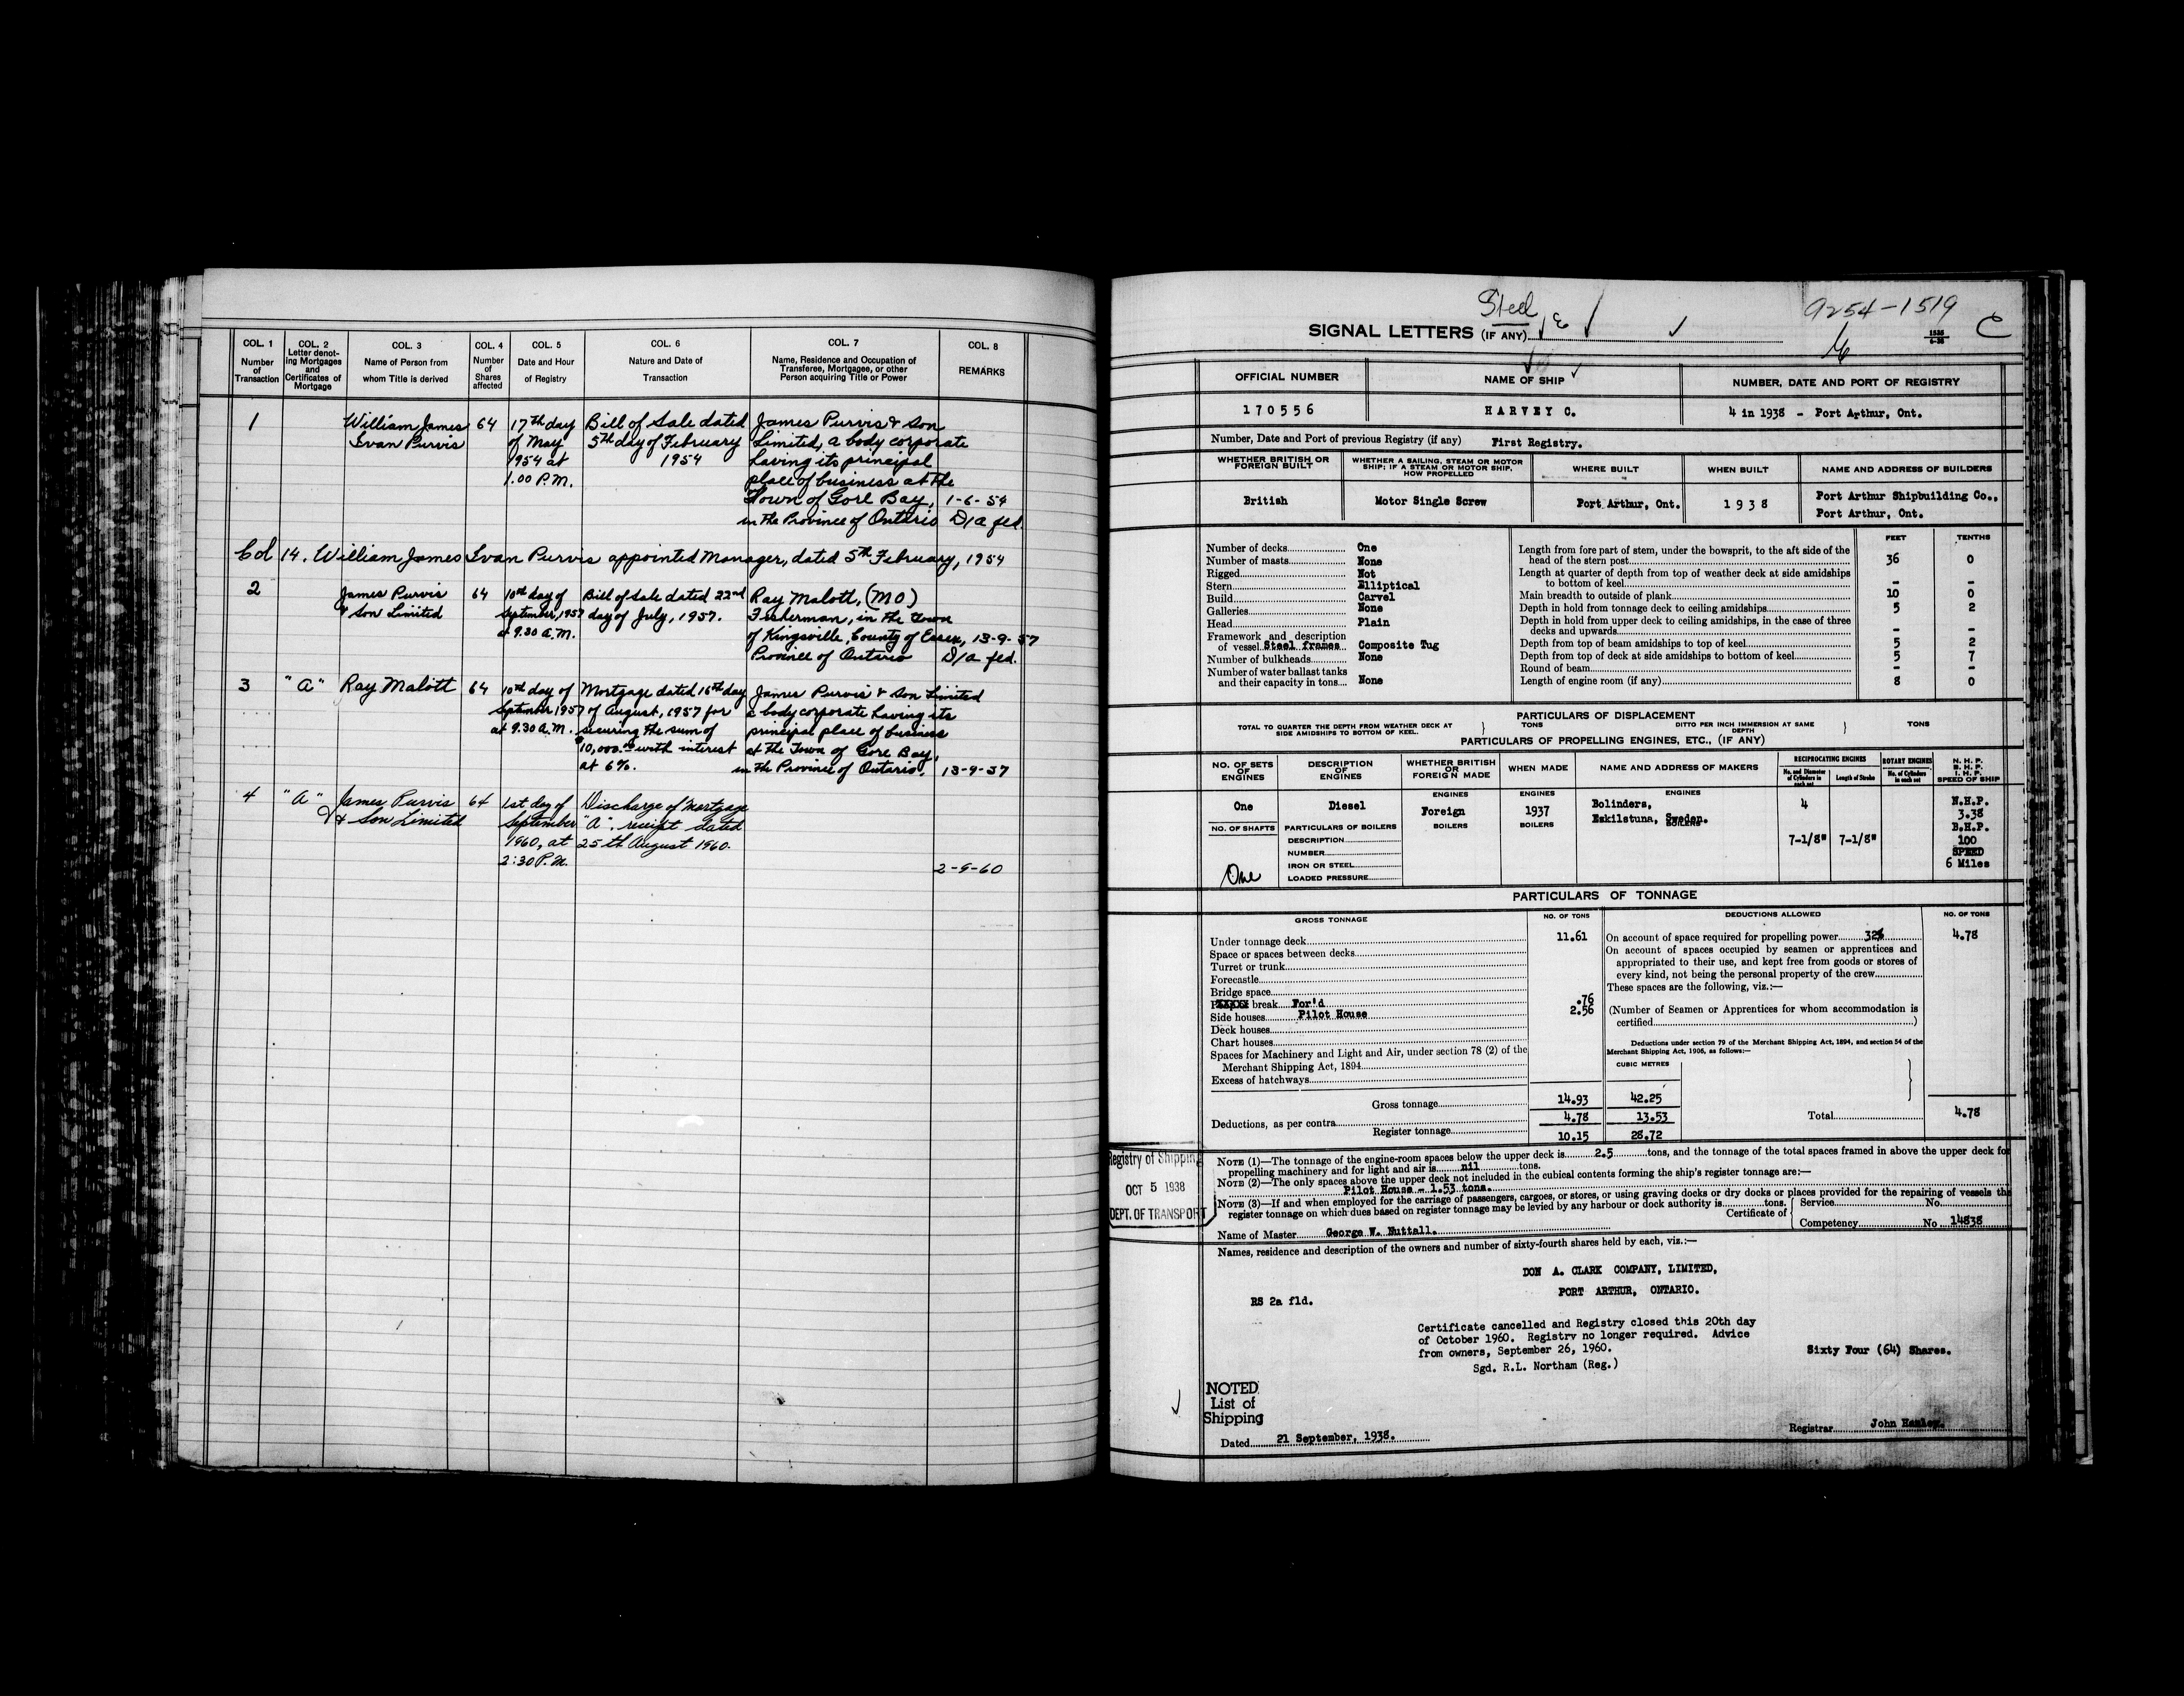 COL. 1 COL. 2 COL. 3 COL. 4 COL. 5 COL. 6 COL. 7 COL. 8
Number of Transaction
Letter denoting Mortgages and Certificates of Mortgage
Name of Person from whom Title is derived
Number of Shares affected
Date and Hour of Registry
Nature and Date of Transaction
Name, Residence and Occupation of Transferee, Mortgagee, or other Person acquiring Title or Power
REMARKS
1 William James 64 17th day Bill of Sale dated James Purvis & Son
Ivan Purvis of May 5th day of February Limited, a body corporate
1954 at 1954 having its principal
1.00 P.M. place of business at the
Town of Gore Bay, 1-6-54
in the Province of Ontario D/a fld.
Cd 14. William James Ivan Purvis appointed Manager, dated 5th February, 1954
2 James Purvis 64 10th day of Bill of Sale dated 22nd Ray Malott, (MO)
& Son Limited September, 1957 day of July, 1957. Fisherman, in the Town
at 9.30 A.M. of Kingsville, County of Essex, 13-9-57
Province of Ontario D/a fld.
3 "A" Ray Malott 64 10th day of Mortgage dated 16th day James Purvis & Son Limited
September 1957 of August, 1957 for a body corporate having its
at 9.30 A.M. securing the sum of principal place of business
$10,000.00 with interest at the Town of Gore Bay,
at 6%. in the Province of Ontario. 13-9-57
4 "A" James Purvis 64 1st day of Discharge of Mortgage
& Son Limited September "A". receipt dated
1960, at 25th August 1960.
2:30 P.M.
2-9-60
Steel
9254-1519
SIGNAL LETTERS (IF ANY)
1535
6-38
C
OFFICIAL NUMBER NAME OF SHIP NUMBER, DATE AND PORT OF REGISTRY
170556 HARVEY C. 4 in 1938 - Port Arthur, Ont.
Number, Date and Port of previous Registry (if any) First Registry.
WHETHER BRITISH OR FOREIGN BUILT
WHETHER A SAILING, STEAM OR MOTOR SHIP; IF A STEAM OR MOTOR SHIP, HOW PROPELLED
WHERE BUILT WHEN BUILT NAME AND ADDRESS OF BUILDERS
British Motor Single Screw Port Arthur, Ont. 1938 Port Arthur Shipbuilding Co.,
Port Arthur, Ont.
Number of decks One
Number of masts None
Rigged Not
Stern Elliptical
Build Carvel
Galleries None
Head Plain
Framework and description
of vessel Steel frames Composite Tug
Number of bulkheads None
Number of water ballast tanks
and their capacity in tons None
FEET TENTHS
Length from fore part of stem, under the bowsprit, to the aft side of the
head of the stern post 36 0
Length at quarter of depth from top of weather deck at side amidships
to bottom of keel - -
Main breadth to outside of plank 10 0
Depth in hold from tonnage deck to ceiling amidships 5 2
Depth in hold from upper deck to ceiling amidships, in the case of three
decks and upwards - -
Depth from top of beam amidships to top of keel 5 2
Depth from top of deck at side amidships to bottom of keel 5 7
Round of beam - -
Length of engine room (if any) 8 0
PARTICULARS OF DISPLACEMENT
TOTAL TO QUARTER THE DEPTH FROM WEATHER DECK AT SIDE AMIDSHIPS TO BOTTOM OF KEEL. } TONS DITTO PER INCH IMMERSION AT SAME DEPTH } TONS
PARTICULARS OF PROPELLING ENGINES, ETC., (IF ANY)
NO. OF SETS OF ENGINES
DESCRIPTION OF ENGINES
WHETHER BRITISH OR FOREIGN MADE
WHEN MADE
NAME AND ADDRESS OF MAKERS
RECIPROCATING ENGINES
No. and Diameter of Cylinders in each set
Length of Stroke
ROTARY ENGINES
No. of Cylinders in each set
N. H. P.
B. H. P.
I. H. P.
SPEED OF SHIP
ENGINES ENGINES ENGINES
One Diesel Foreign 1937 Bolinders, 4 N.H.P.
Eskilstuna, Sweden. 3.38
BOILERS BOILERS BOILERS B.H.P.
7-1/8" 7-1/8" 100
SPEED
6 Miles
NO. OF SHAFTS PARTICULARS OF BOILERS
DESCRIPTION
NUMBER
IRON OR STEEL
LOADED PRESSURE
One
PARTICULARS OF TONNAGE
GROSS TONNAGE NO. OF TONS DEDUCTIONS ALLOWED NO. OF TONS
Under tonnage deck 11.61
Space or spaces between decks
Turret or trunk
Forecastle
Bridge space
break For'd .76
Side houses Pilot House 2.56
Deck houses
Chart houses
Spaces for Machinery and Light and Air, under section 78 (2) of the
Merchant Shipping Act, 1894
Excess of hatchways
Gross tonnage 14.93 42.25
Deductions, as per contra 4.78 13.53
Register tonnage 10.15 28.72
On account of space required for propelling power 32% 4.78
On account of spaces occupied by seamen or apprentices and
appropriated to their use, and kept free from goods or stores of
every kind, not being the personal property of the crew
These spaces are the following, viz.:—
(Number of Seamen or Apprentices for whom accommodation is
certified )
Deductions under section 79 of the Merchant Shipping Act, 1894, and section 54 of the
Merchant Shipping Act, 1906, as follows:—
CUBIC METRES
Total 4.78
Registry of Shipping
OCT 5 1938
DEPT. OF TRANSPORT
NOTE (1)—The tonnage of the engine-room spaces below the upper deck is 2.5 tons, and the tonnage of the total spaces framed in above the upper deck for
propelling machinery and for light and air is nil tons.
NOTE (2)—The only spaces above the upper deck not included in the cubical contents forming the ship's register tonnage are:—
Pilot House - 1.53 tons.
NOTE (3)—If and when employed for the carriage of passengers, cargoes, or stores, or using graving docks or dry docks or places provided for the repairing of vessels the
register tonnage on which dues based on register tonnage may be levied by any harbour or dock authority is tons.
Certificate of { Service No.
Competency No 14838
Name of Master George W. Nuttall.
Names, residence and description of the owners and number of sixty-fourth shares held by each, viz.:—
DON A. CLARK COMPANY, LIMITED,
PORT ARTHUR, ONTARIO.
RS 2a fld.
Certificate cancelled and Registry closed this 20th day
of October 1960. Registry no longer required. Advice
from owners, September 26, 1960.
Sgd. R.L. Northam (Reg.)
Sixty Four (64) Shares.
NOTED
List of
Shipping
Dated 21 September, 1938.
Registrar John Hanley.